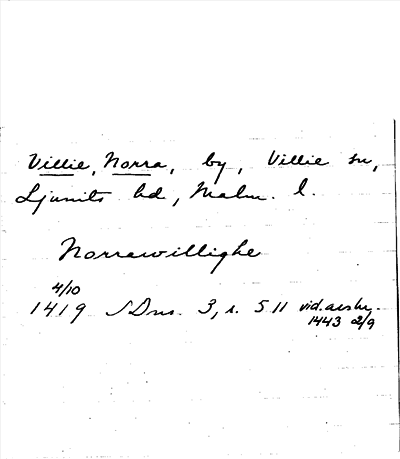 Villie, Norra, by, Villie sn,
Ljunits hd, Malm. l.
Norrawillighe
4/10
1419 SDns. 3, s. 511 vid.avskr.
1443 2/9